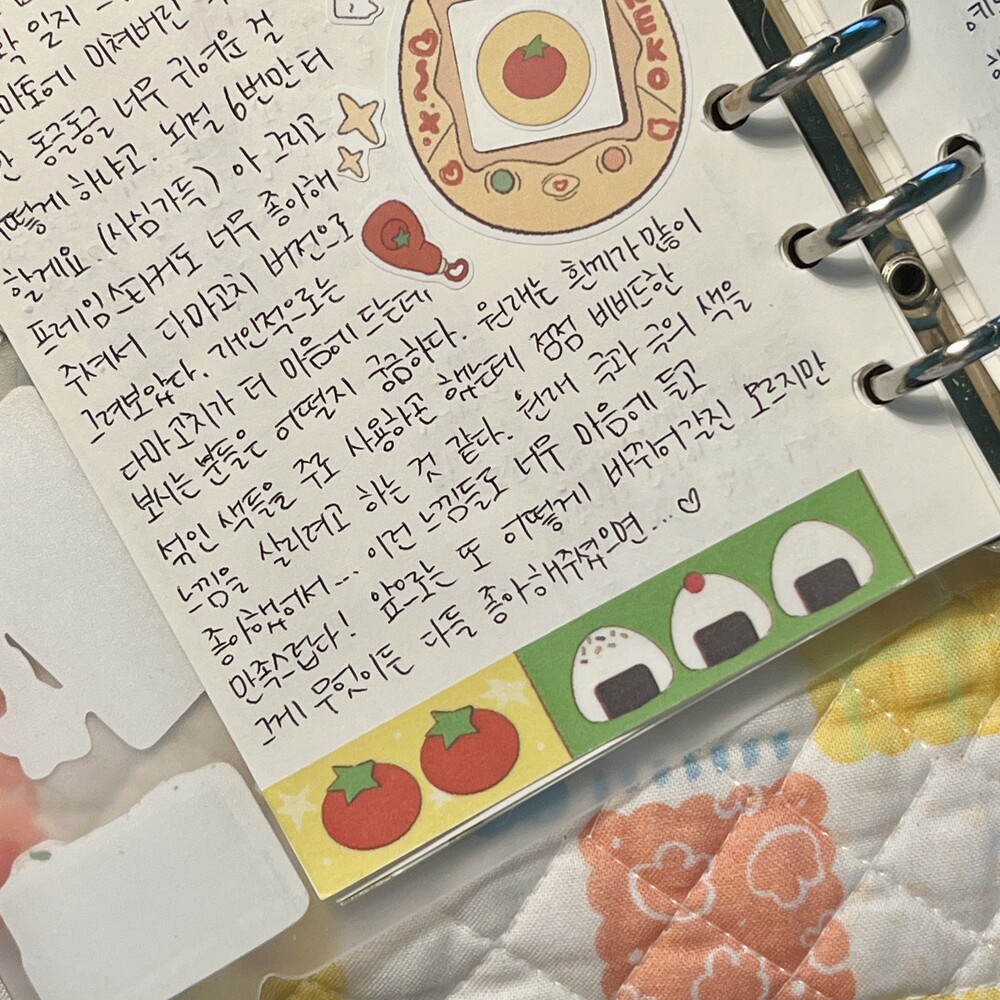 일지
마토에 미쳐버린
동글동글 너무 귀여운 걸
떻게 하냐고. 뇌절 6번만 더
할게요. (사심가득) 아 그리고
프레임스티커도 너무 좋아해
주셔서 다마고치 버전으로
그려보았다. 개인적으로는
다마고치가 더 마음에 드는데
보시는 분들은 어떨지 궁금하다. 원래는 흰끼가 많이
섞인 색들을 주로 사용하곤 했는데 점점 비비드한
느낌을 살리려고 하는 것 같다. 원래 극과 극의 색을
좋아했어서... 이런 느낌들도 너무 마음에 들고
만족스럽다! 앞으로는 또 어떻게 바뀌어갈진 모르지만
그게 무엇이든 다들 좋아해주셨으면... ♡